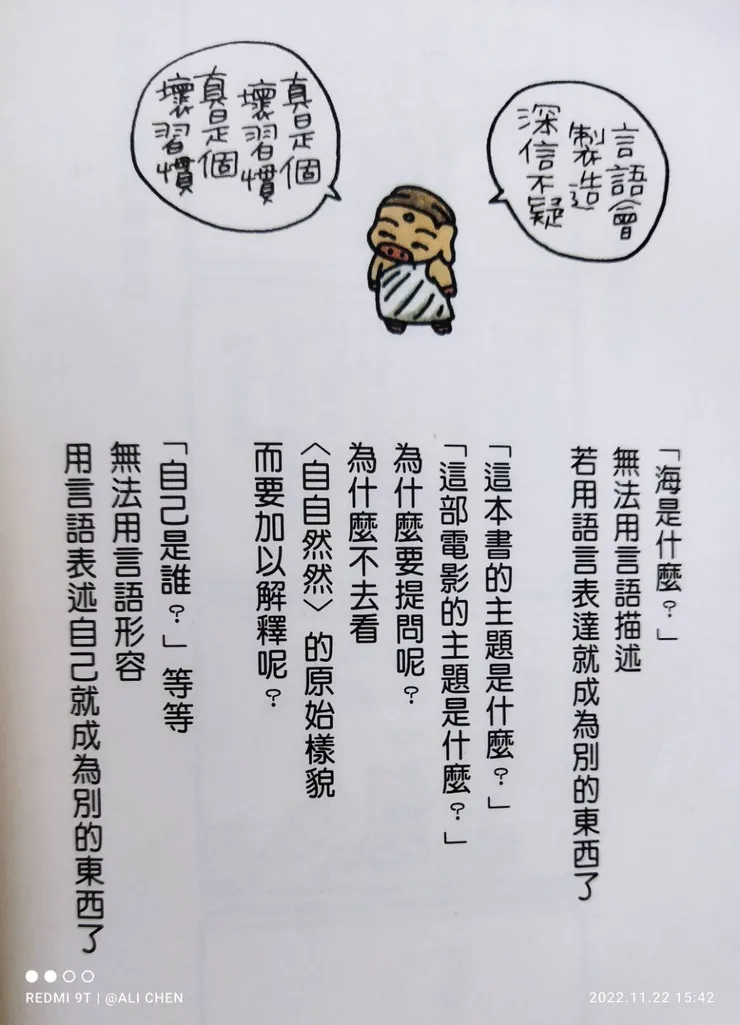 言語會
製造
深信不疑
真是個
壞習慣
真是個
壞習慣
「海是什麼？」
無法用言語描述
若用語言表達就成為別的東西了
「這本書的主題是什麼？」
「這部電影的主題是什麼？」
為什麼要提問呢？
為什麼不去看
〈自自然然〉的原始樣貌
而要加以解釋呢？
「自己是誰？」等等
無法用言語形容
用言語表述自己就成為別的東西了
REDMI 9T | @ALI CHEN
2022.11.22 15:42